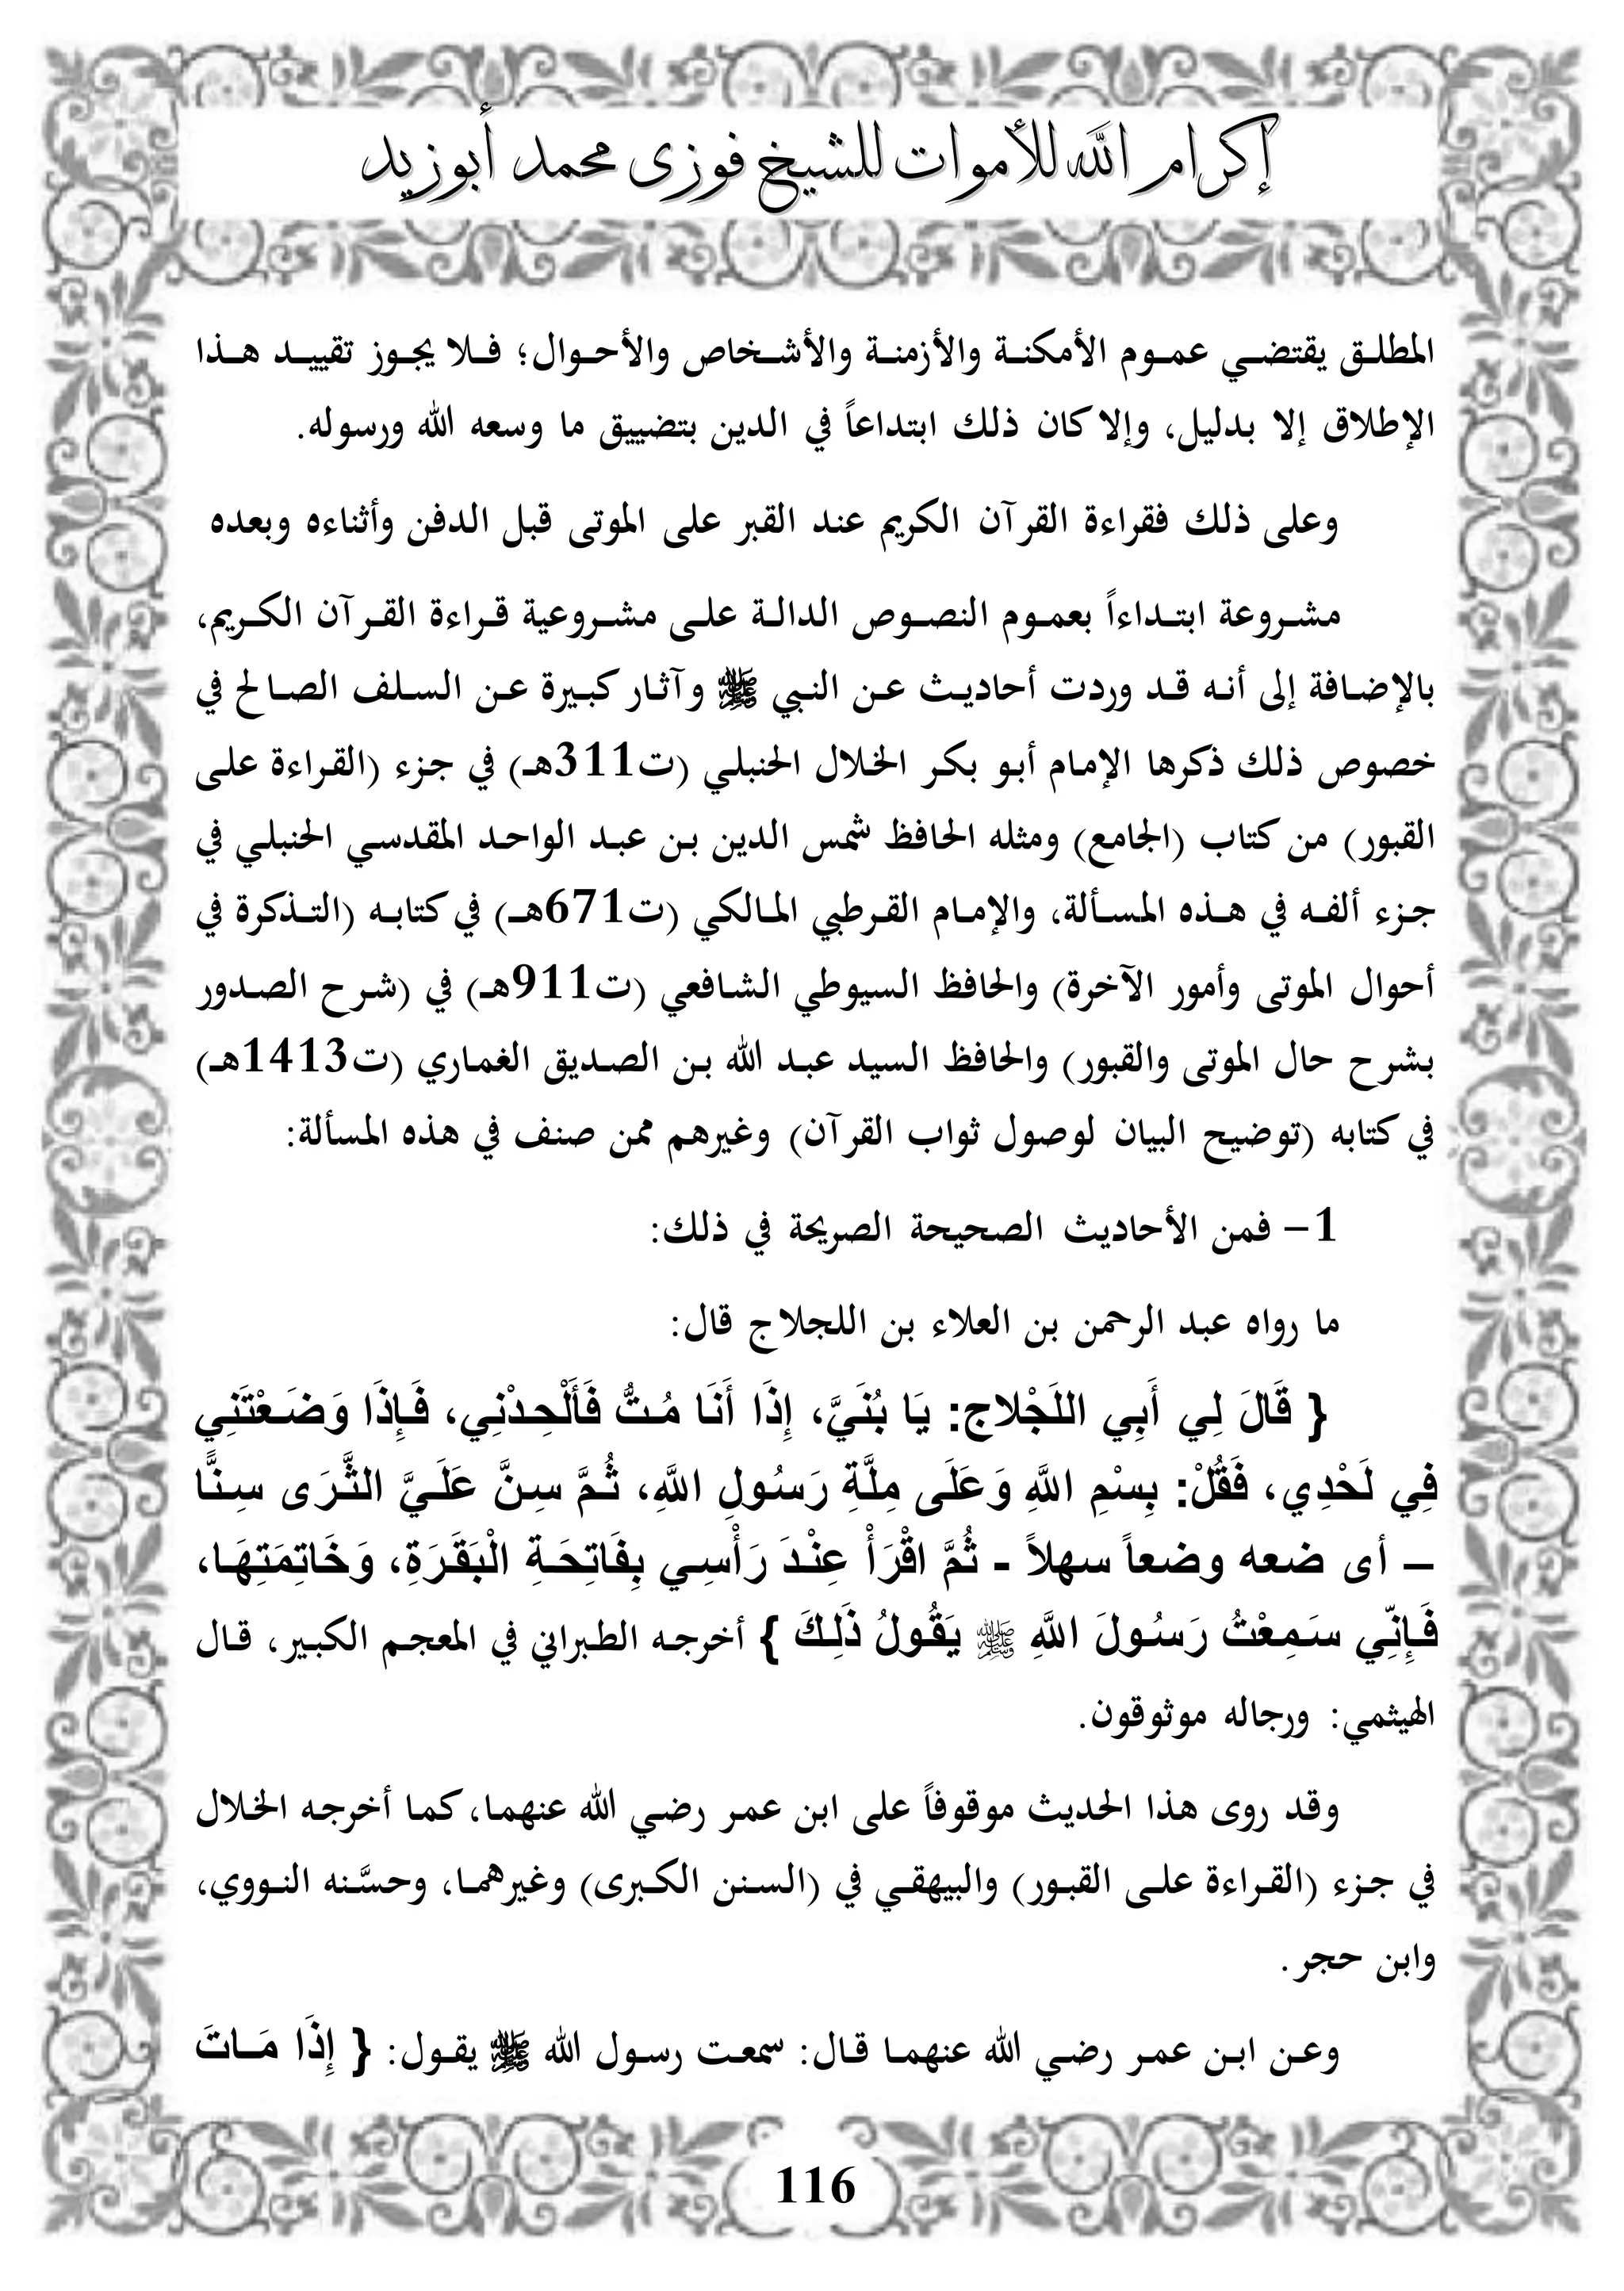 إكرام الله للأموات للشيخ فوزى محمد أبوزيد
المطلق يقتضي عموم الأمكنة والأزمنة والأشخاص والأحوال؛ فلا يجوز تقييد هذا
الإطلاق إلا بدليل، وإلا كان ذلك ابتداعاً في الدين بتضييق ما وسعه الله ورسوله.
وعلى ذلك فقراءة القرآن الكريم عند القبر على الموتى قبل الدفن وأثناءه وبعده
مشروعة ابتداءاً بعموم النصوص الدالة على مشروعية قراءة القرآن الكريم،
بالإضافة إلى أنه قد وردت أحاديث عن النبي ﷺ وآثار كبيرة عن السلف الصالح في
خصوص ذلك ذكرها الإمام أبو بكر الخلال الحنبلي (ت311هـ) في جزء (القراءة على
القبور) من كتاب (الجامع) ومثله الحافظ شمس الدين بن عبد الواحد المقدسي الحنبلي في
جزء ألفه في هذه المسألة، والإمام القرطبي المالكي (ت671هـ) في كتابه (التذكرة في
أحوال الموتى وأمور الآخرة) والحافظ السيوطي الشافعي (ت911هـ) في (شرح الصدور
بشرح حال الموتى والقبور) والحافظ السيد عبد الله بن الصديق الغماري (ت1413هـ)
في كتابه (توضيح البيان لوصول ثواب القرآن) وغيرهم ممن صنف في هذه المسألة:
1- فمن الأحاديث الصحيحة الصريحة في ذلك:
ما رواه عبد الرحمن بن العلاء بن اللجلاج قال:
{ قَالَ لِي أَبِي اللَجْلاج: يَا بُنَيَّ، إِذَا أَنَا مُتُّ فَأَلْحِدْنِي، فَإِذَا وَضَعْتَنِي
فِي لَحْدِي، فَقُلْ: بِسْمِ اللَّهِ وَعَلَى مِلَّةِ رَسُولِ اللَّهِ، ثُمَّ سِنَّ عَلَيَّ الثَّرَى سِنًّا
– أى ضعه وضعاً سهلاً - ثُمَّ اقْرَأْ عِنْدَ رَأْسِي بِفَاتِحَةِ الْبَقَرَةِ، وَخَاتِمَتِهَا،
فَإِنِّي سَمِعْتُ رَسُولَ اللَّهِ ﷺ يَقُولُ ذَلِكَ } أخرجه الطبراني في المعجم الكبير، قال
الهيثمي: ورجاله موثوقون.
وقد روى هذا الحديث موقوفاً على ابن عمر رضي الله عنهما، كما أخرجه الخلال
في جزء (القراءة على القبور) والبيهقي في (السنن الكبرى) وغيرهما، وحسَّنه النووي،
وابن حجر.
وعن ابن عمر رضي الله عنهما قال: سمعت رسول الله ﷺ يقول: { إِذَا مَاتَ
116